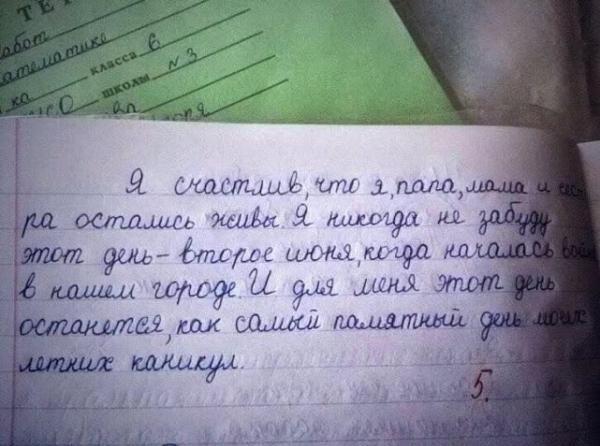 ТЕТ
работ
математике
ка класса 6
школы № 3
Я счастлив, что я, папа, мама и сест-
ра остались живы. Я никогда не забуду
этот день - второе июня, когда началась война
в нашем городе. И для меня этот день
останется, как самый памятный день моих
летних каникул.
5.